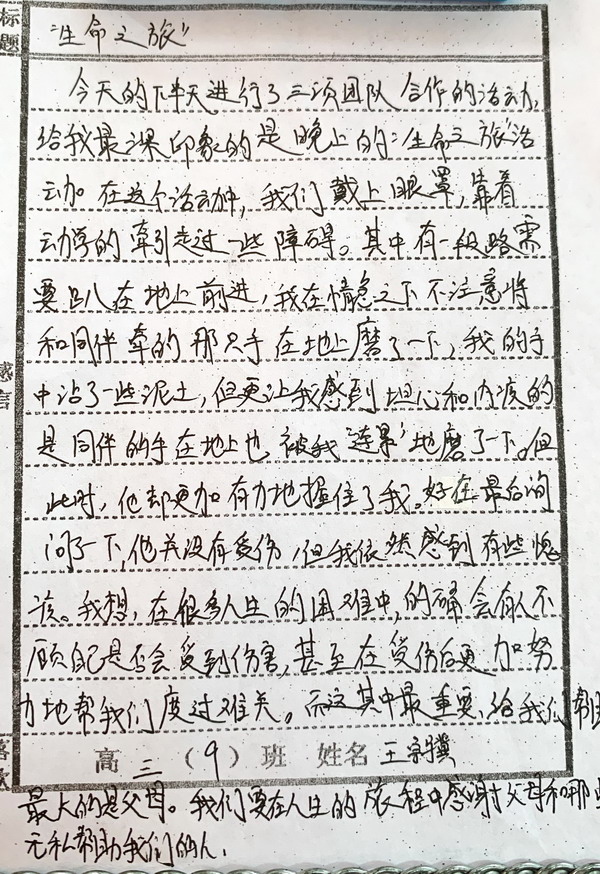 标题
"生命之旅"
今天的下半天进行了三项团队合作的活动,
给我最深印象的是晚上的:"生命之旅"活
动。在这个活动中,我们戴上眼罩,靠着
动学的牵引走过一些障碍。其中有一段路需
要趴在地上前进,我在情急之下不注意将
和同伴牵的那只手在地上磨了一下,我的手
中沾了一些泥土,但更让我感到担心和内疚的
是同伴的手在地上也被我"连累"地磨了一下。但
此时,他却更加有力地握住了我。好在最后询
问了一下,他并没有受伤,但我依然感到有些愧
疚。我想,在很多人生的困难中,的确会有人不
顾自己是否会受到伤害,甚至在受伤后更加努
力地帮我们度过难关。而这其中最重要、给我们帮助
感言
高三(9)班 姓名 王宗骥
最大的是父母。我们要在人生的旅程中感谢父母和那些
无私帮助我们的人.